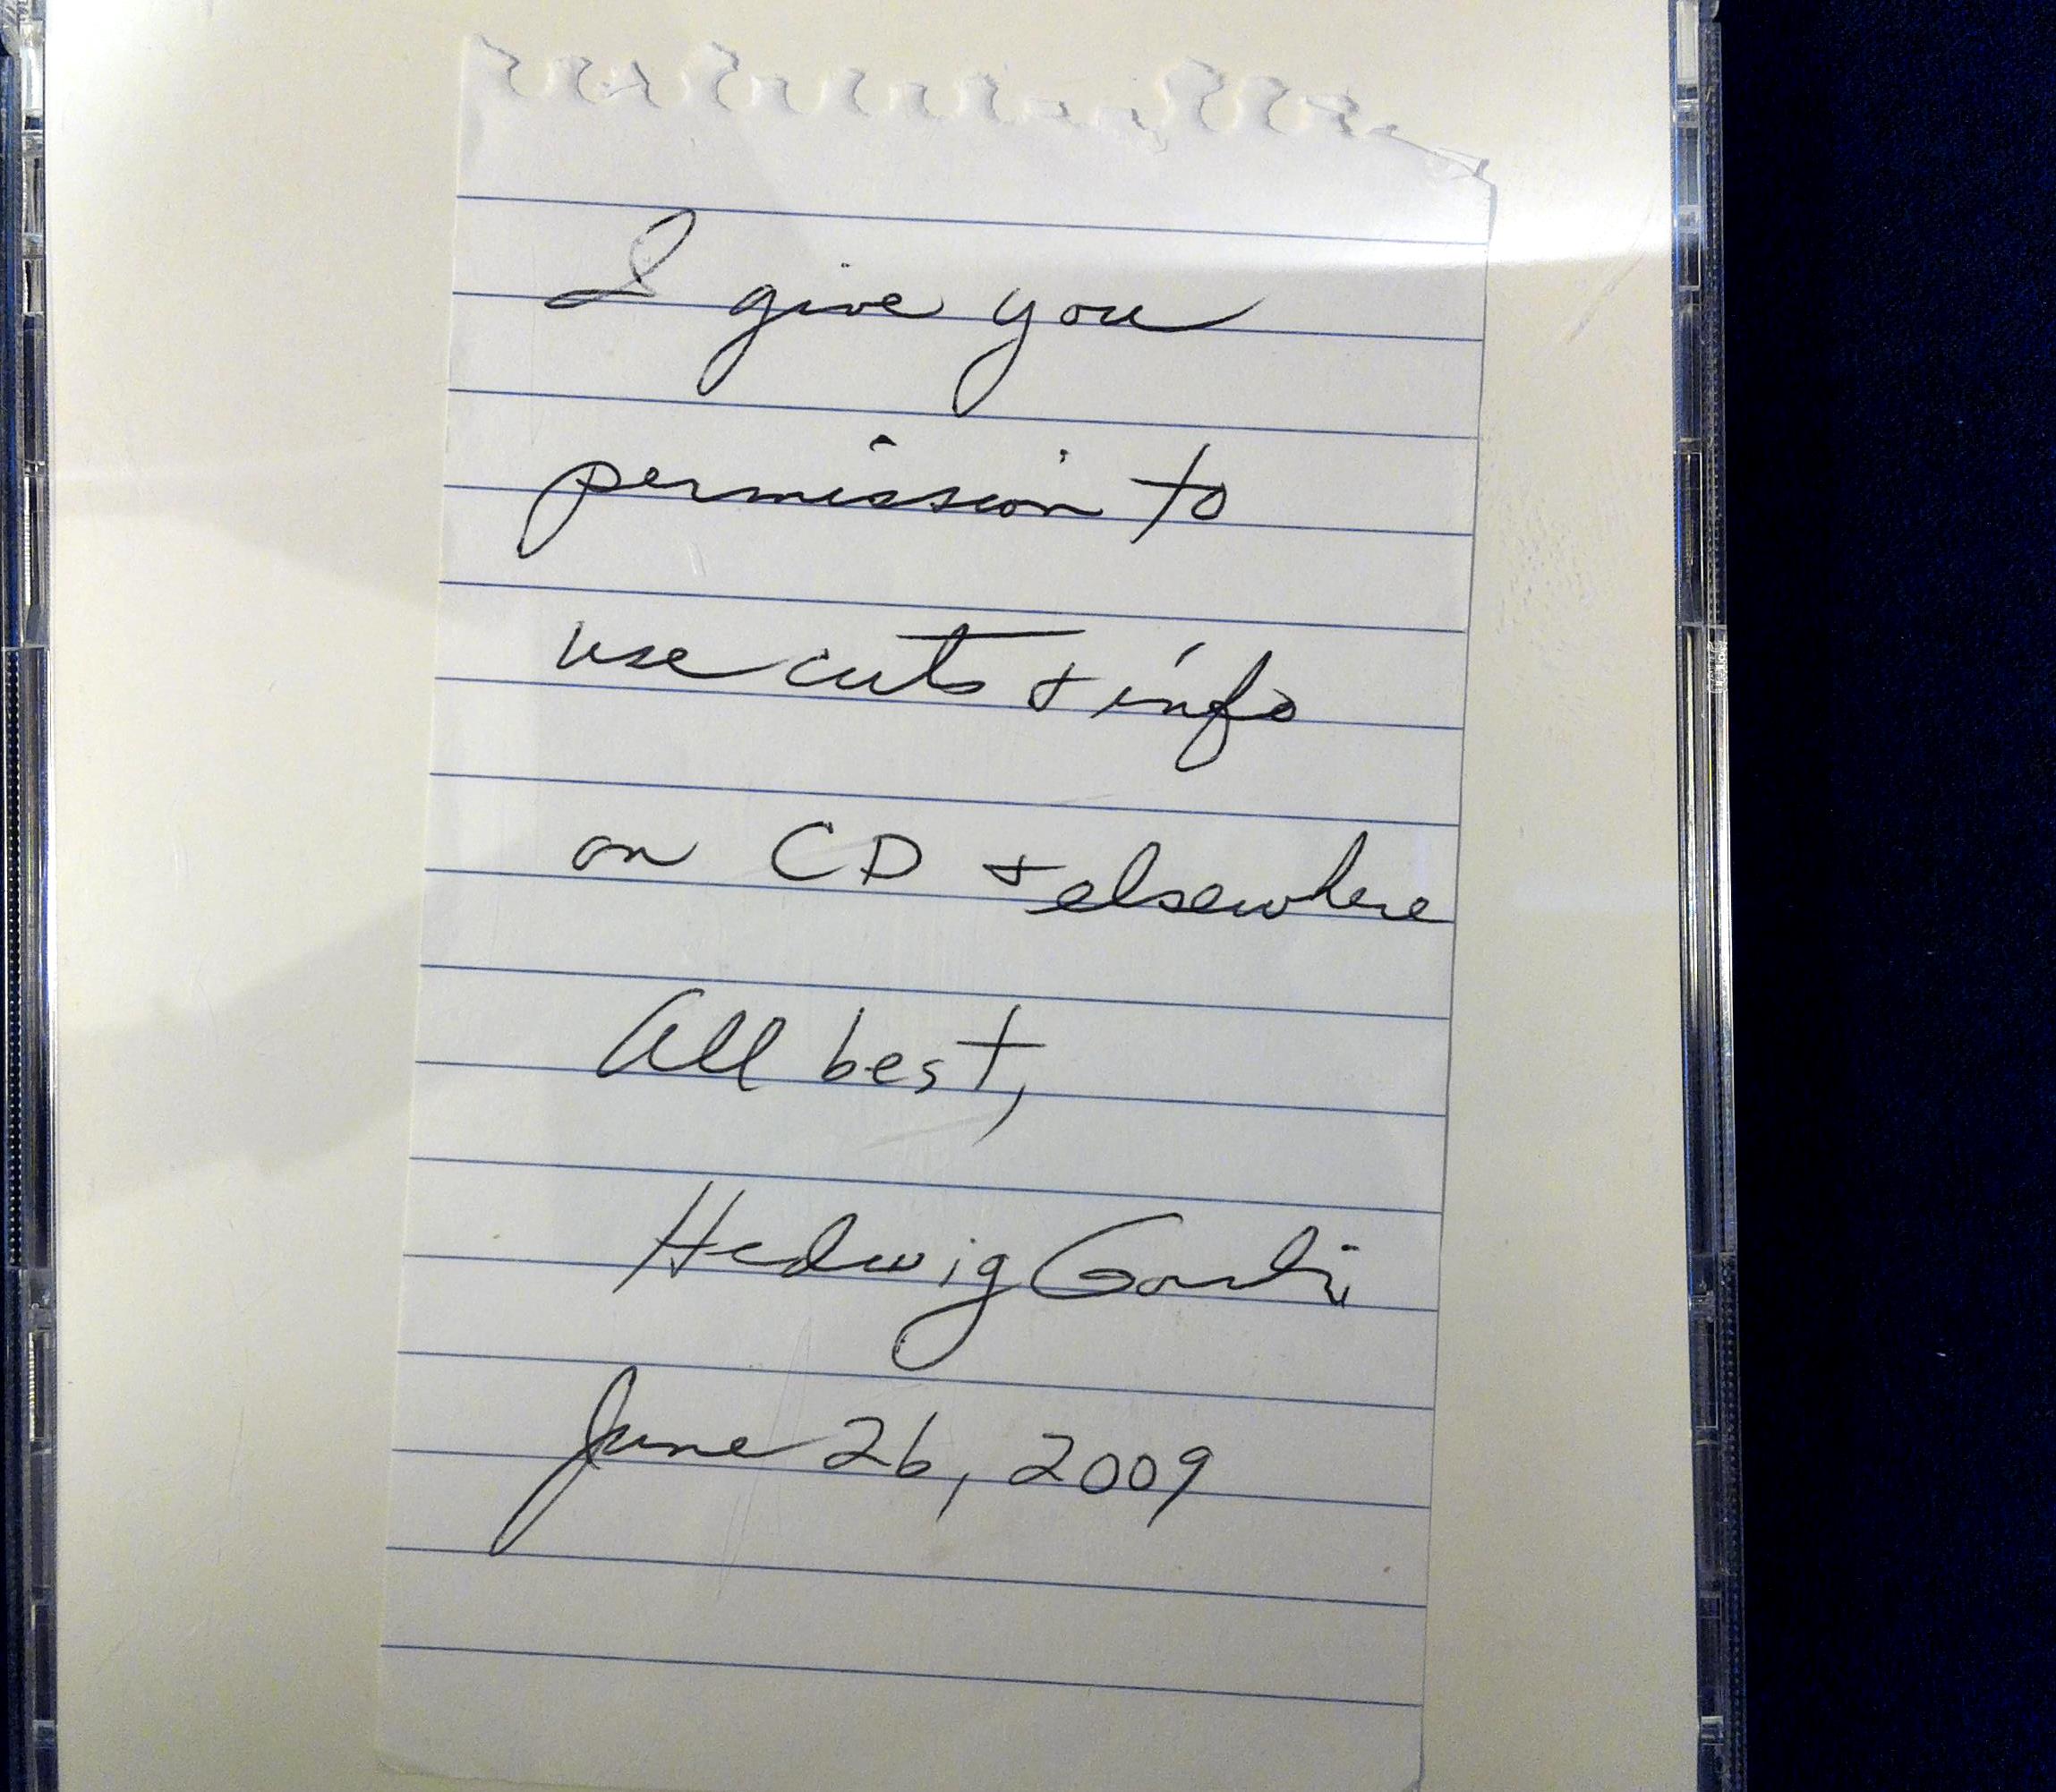 I give you
permission to
use cuts + info
on CD + elsewhere
All best,
Hedwig Gorski
June 26, 2009